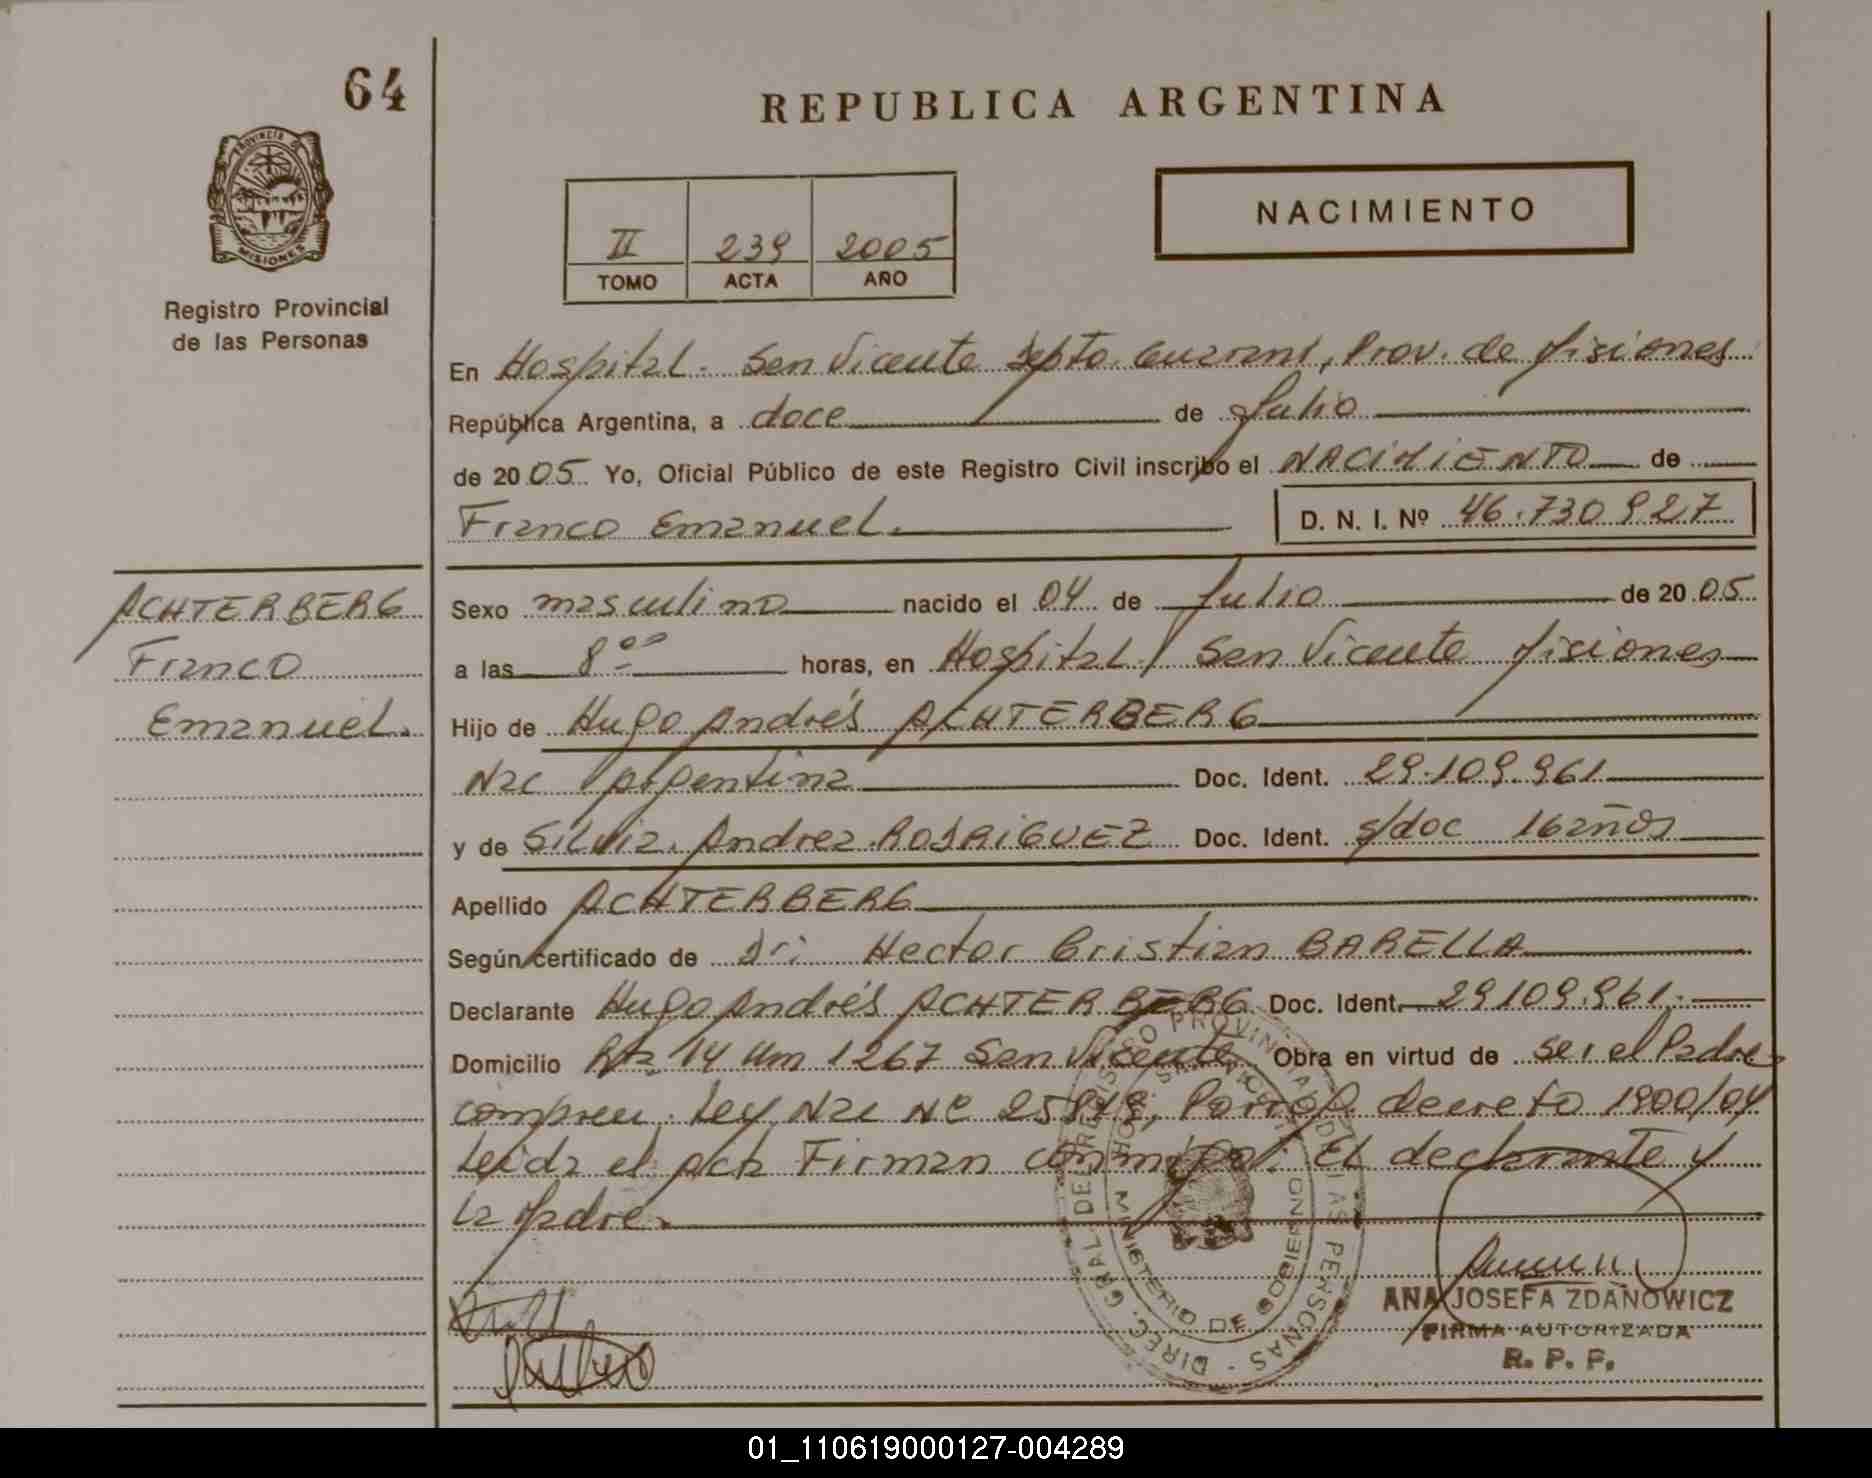 64
REPUBLICA ARGENTINA
PROVINCIA DE
MISIONES
Registro Provincial
de las Personas
II 239 2005
TOMO ACTA AÑO
NACIMIENTO
En Hospital. San Vicente Depto. Guarani, Prov. de Misiones
República Argentina, a doce de Julio
de 2005 Yo, Oficial Público de este Registro Civil inscribo el NACIMIENTO de
Franco Emanuel.
D. N. I. Nº 46.730.927
ACHTERBERG
Franco
Emanuel.
Sexo masculino nacido el 04 de Julio de 2005
a las 8 00 horas, en Hospital / San Vicente Misiones
Hijo de Hugo Andrés ACHTERBERG
Nac Argentina Doc. Ident. 29.109.961
y de Silvia Andrea RODRIGUEZ Doc. Ident. s/doc 16 años
Apellido ACHTERBERG
Según certificado de Dr: Hector Cristian BARELLA
Declarante Hugo Andrés ACHTERBERG Doc. Ident. 29109.961.
Domicilio Rta 14 Km 1267 San Vicente Obra en virtud de ser el Padre
Ley Nac Nº decreto 1900/04
Leida el acta Firman conmigo: El declarante y
la Madre.
DIREC. GRAL. DE REGISTRO PROVINCIAL DE LAS PERSONAS
MINISTERIO DE GOBIERNO
ANA JOSEFA ZDANOWICZ
FIRMA AUTORIZADA
R. P. P.
01_110619000127-004289